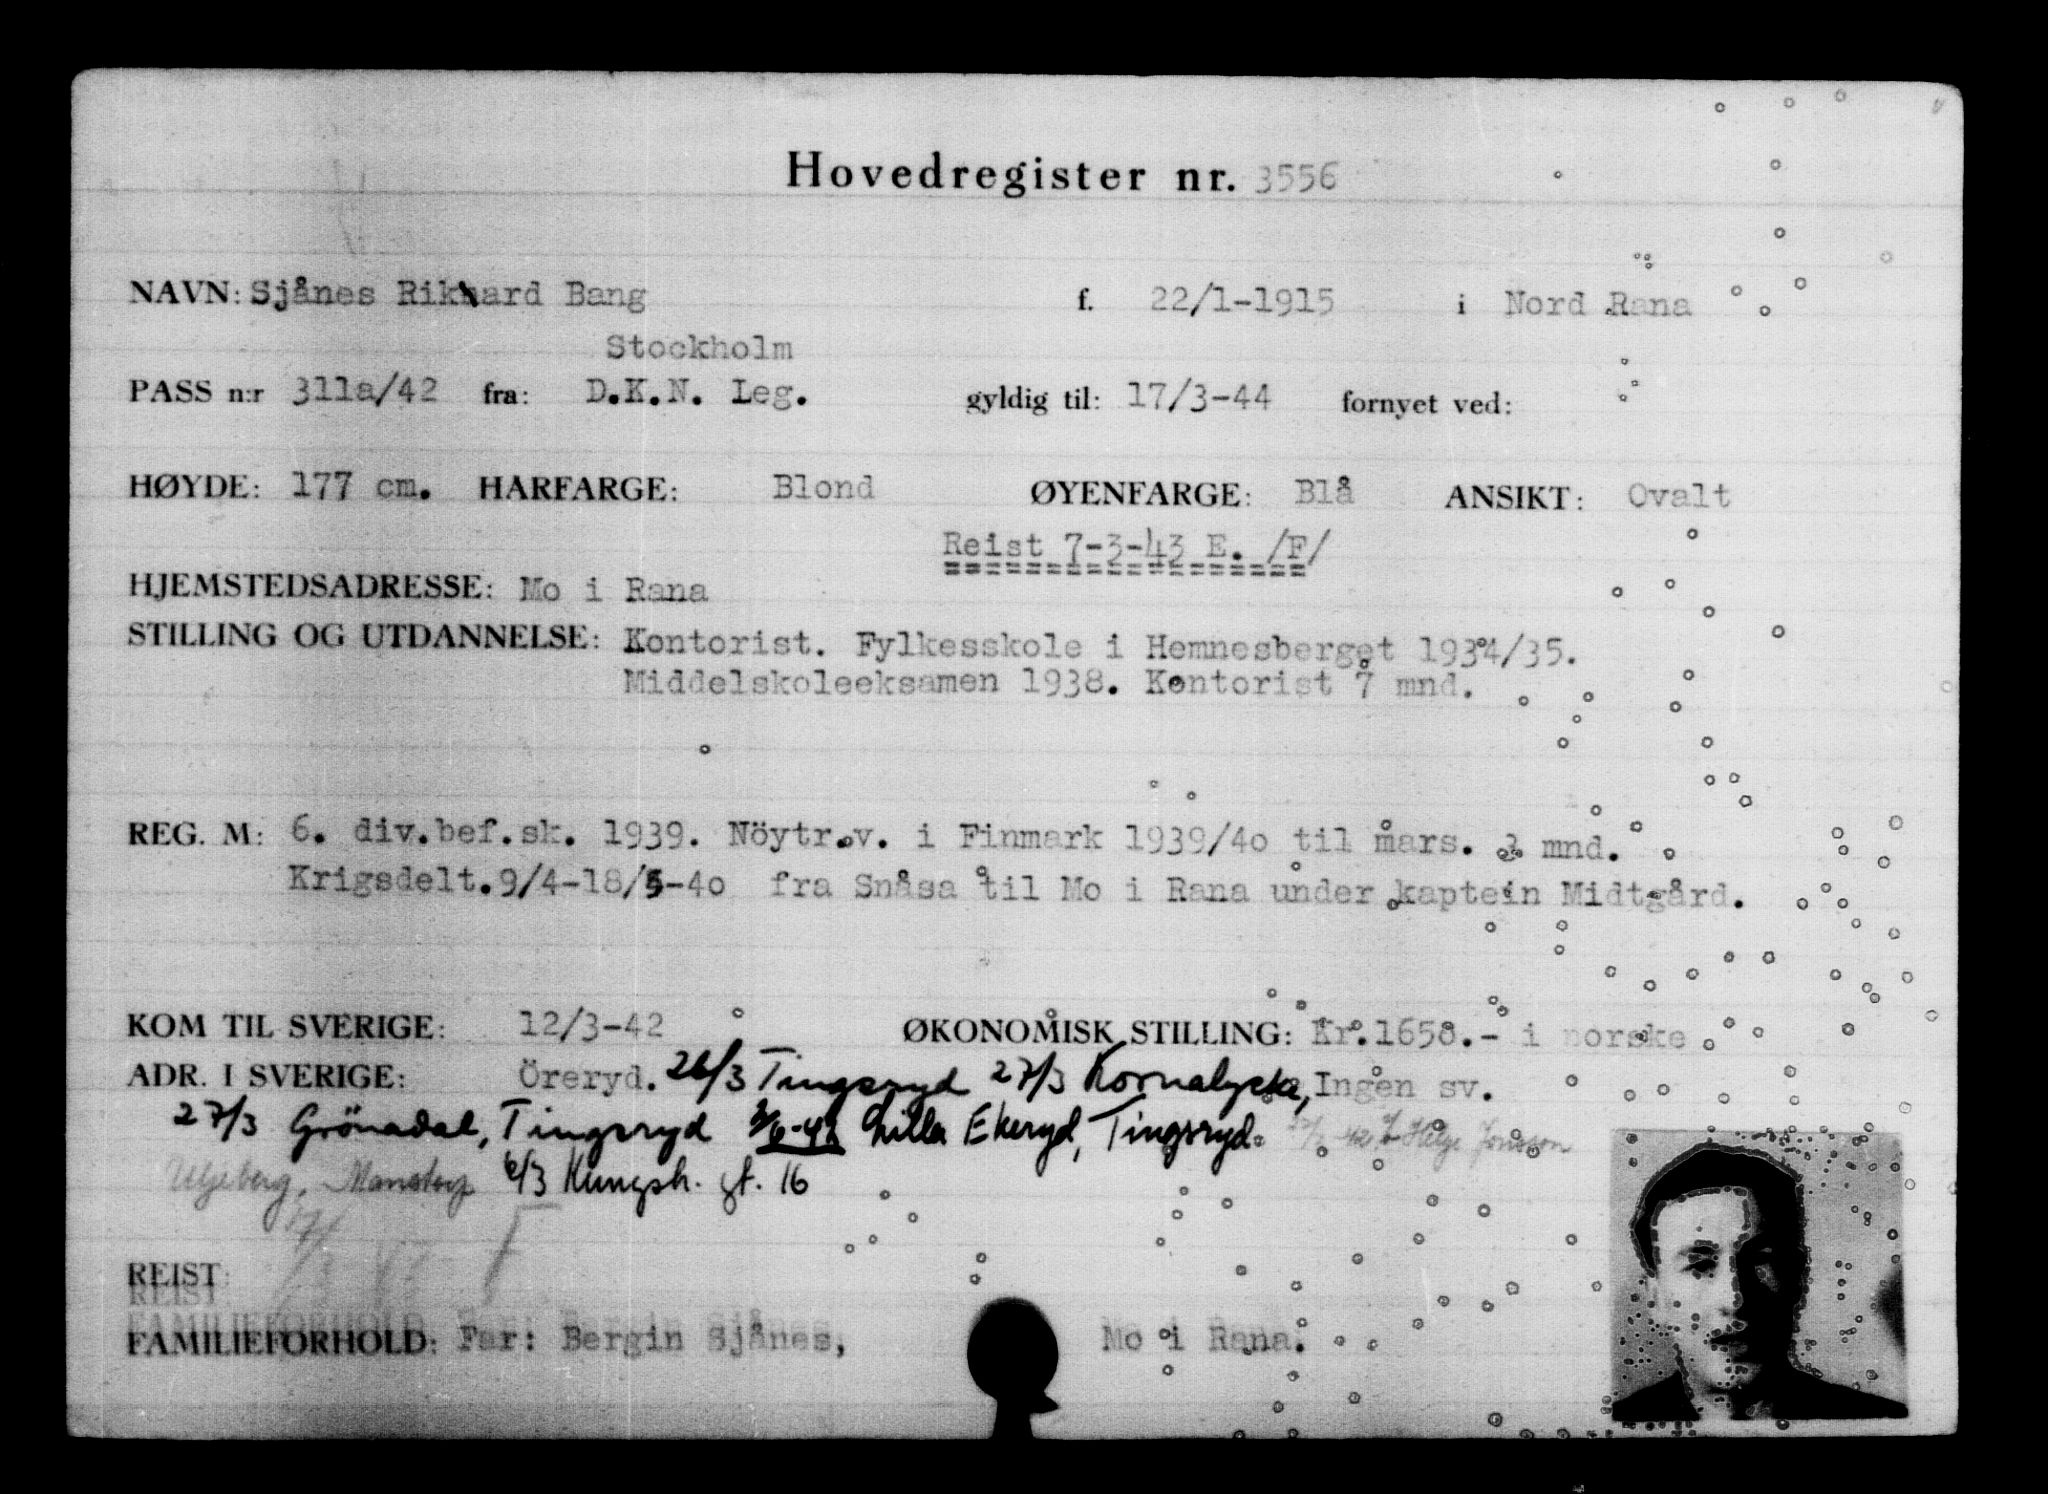 Hovedregister nr. 3556
NAVN: Sjånes Rikard Bang f. 22/1-1915 i Nord Rana
Stockholm
PASS n:r 311a/42 fra: D.K.N. Leg. gyldig til: 17/3-44 fornyet ved:
HØYDE: 177 cm. HARFARGE: Blond ØYENFARGE: Blå ANSIKT: Ovalt
Reist 7-3-43 E. /F/
HJEMSTEDSADRESSE: Mo i Rana
STILLING OG UTDANNELSE: Kontorist. Fylkesskole i Hemnesberget 1934/35.
Middelskoleeksamen 1938. Kontorist 7 mnd.
REG. M: 6. div.bef.sk. 1939. Nöytr.v. i Finmark 1939/40 til mars. 3 mnd.
Krigsdelt.9/4-18/5-40 fra Snåsa til Mo i Rana under kaptein Midtgård.
KOM TIL SVERIGE: 12/3-42 ØKONOMISK STILLING: Kr.1658.- i norske
ADR. I SVERIGE: Öreryd. 26/3 Tingsryd 27/3 Kornalycke, Ingen sv.
27/3 Grönadal, Tingsryd 3/6-42 Lilla Ekeryd, Tingsryd. Helge Jonsson
6/3 Kungsh. gt. 16
REIST:
REIST:
FAMILIEFORHOLD: Far: Bergin Sjånes, Mo i Rana.